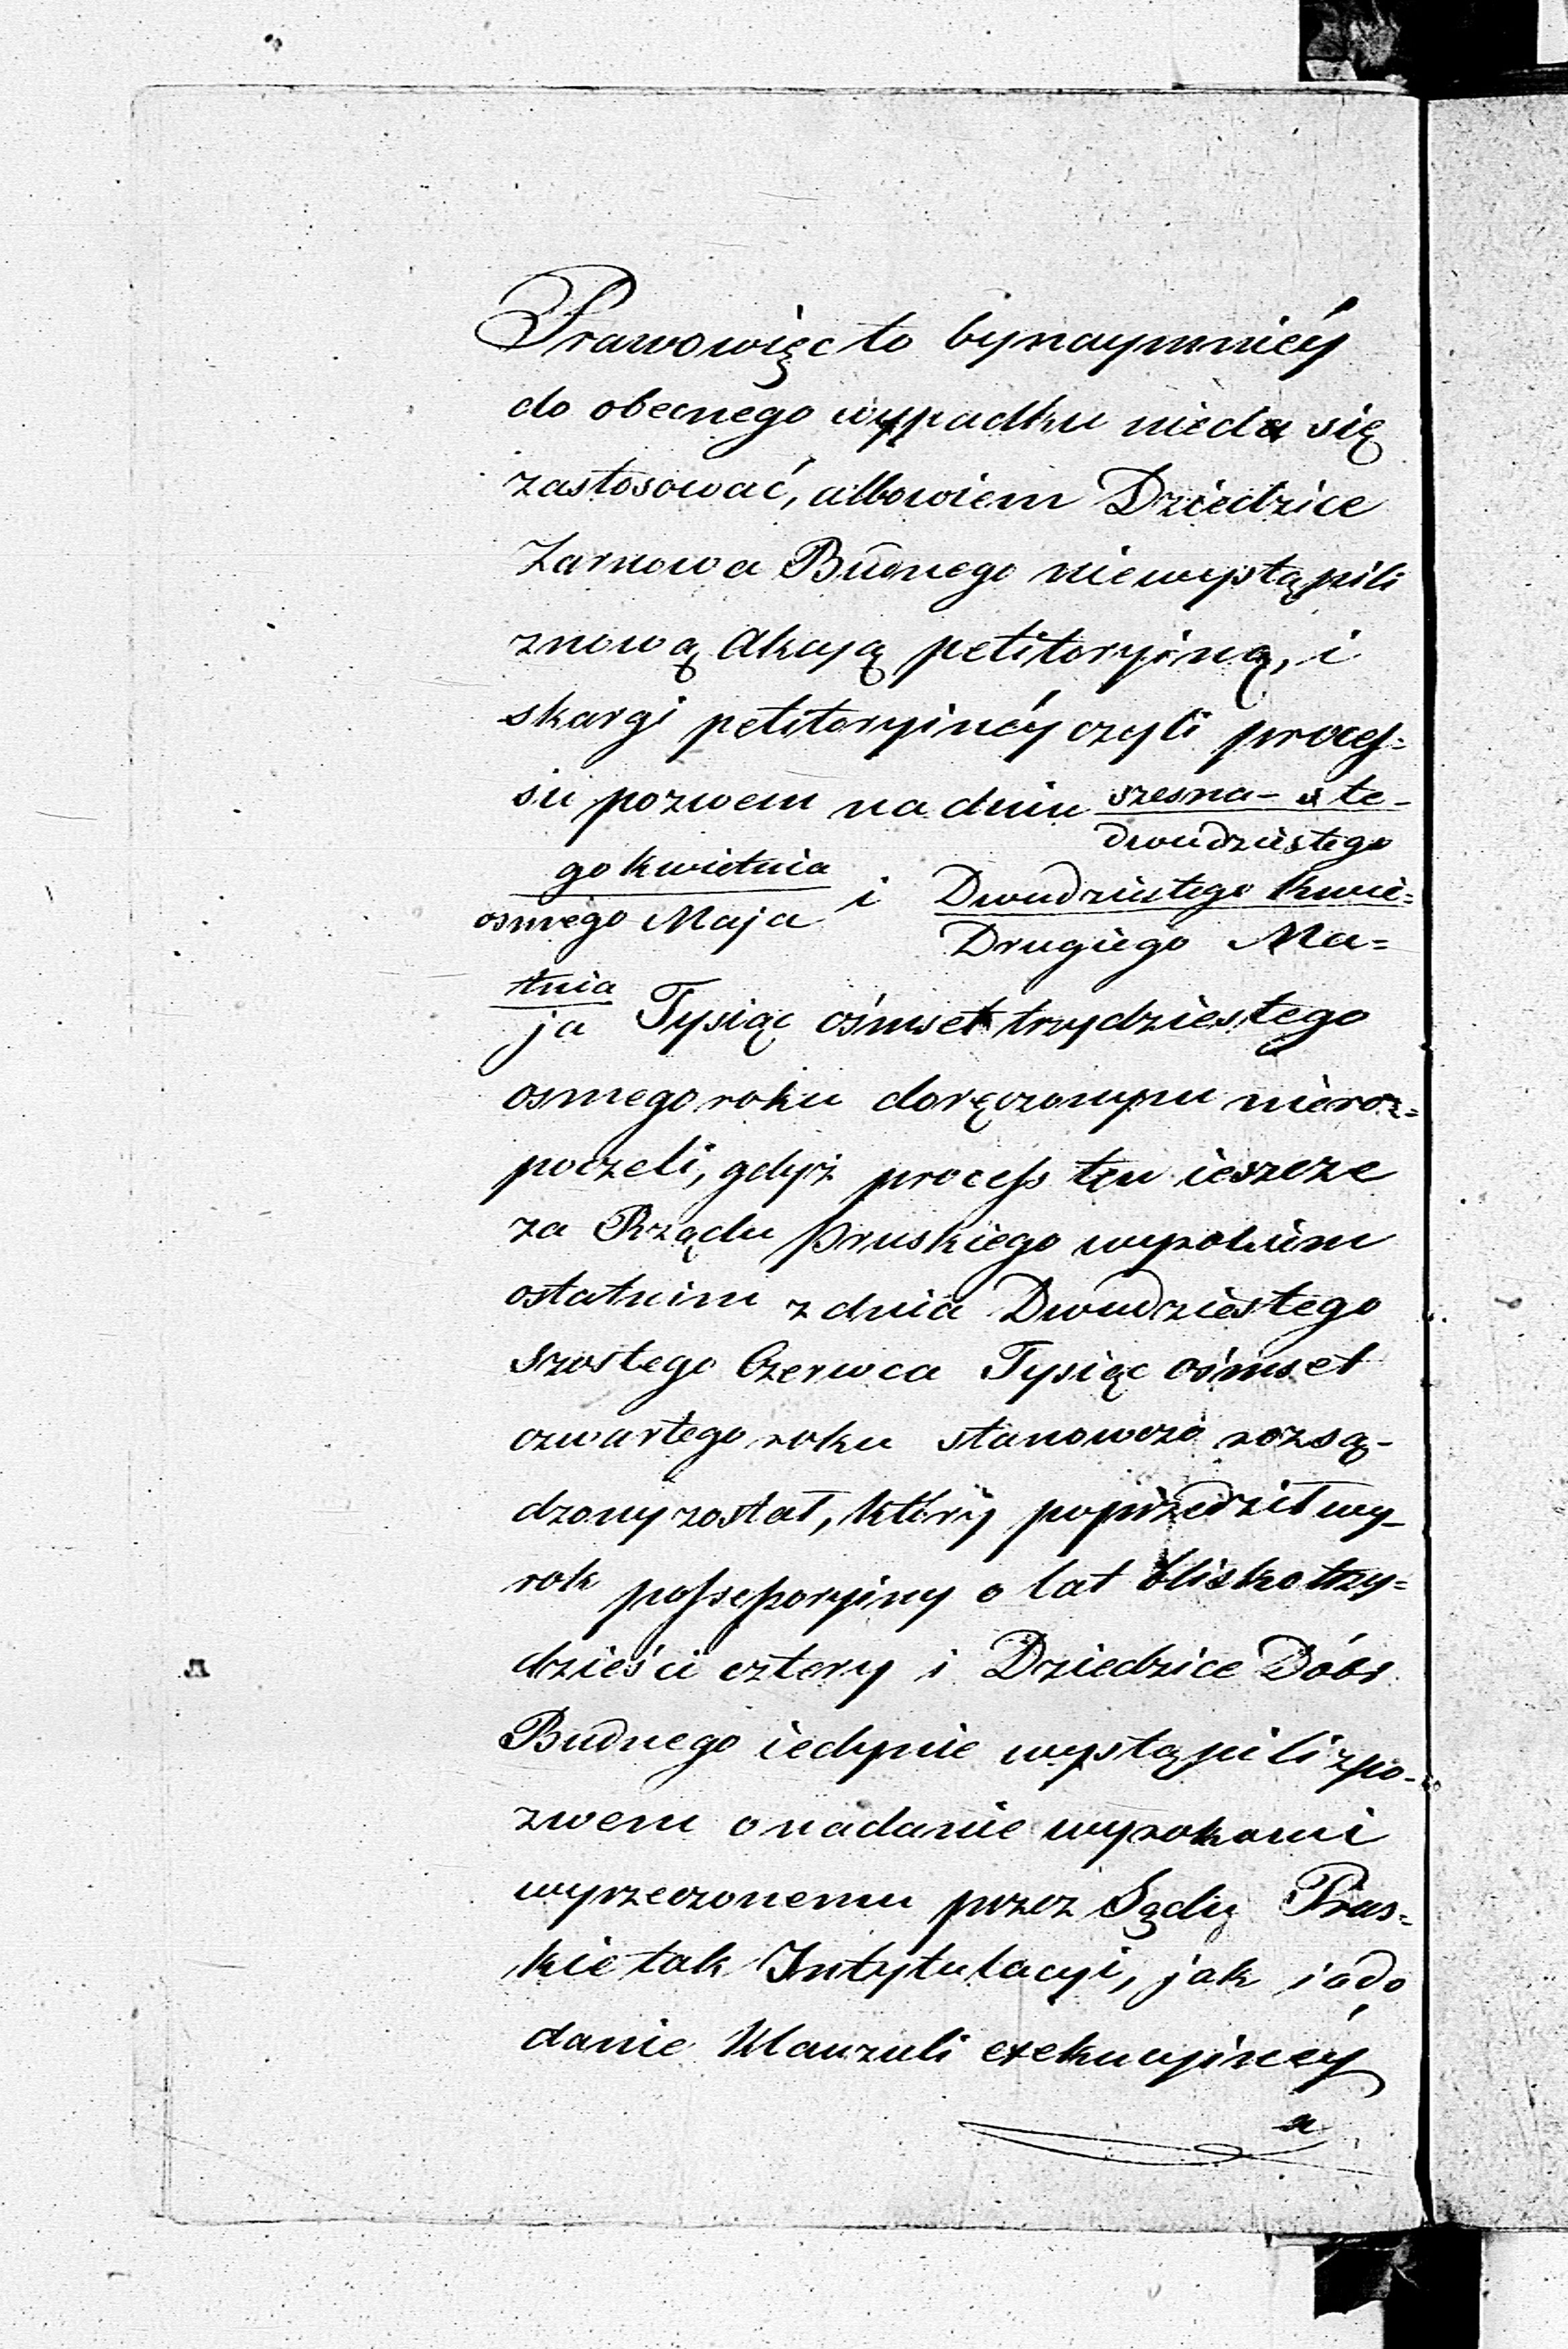 Prawo więc to bynaymniéy
do obecnego wypadku nieda się
zastosować, albowiem Dziedzice
Żarnowa Budnego niewystąpili
znową Akcyą petitoryiną, i
skargi petitoryinéy czyli proces=
su pozwem na dniu szesna- ste-
dwudziestego
go kwietnia i Dwudziestego Kwie=
osmego Maja Drugiego Ma=
tnia
ja Tysiąc ośmset trzydziestego
osmego roku doręczonym nieroz=
poczeli, gdyż process ten ieszcze
za Rządu Pruskiego wyrokiem
ostatnim z dnia Dwudziestego
szostego Czerwca Tysiąc ośmset
czwartego roku stanowczo rozsą-
dzony został, który poprzedził wy-
rok possessoryiny o lat blisko trzy=
dzieści cztery i Dziedzice Dóbr
Budnego iedynie wystąpili z po-
zwem o nadanie wyrokowi
wyrzeczonemu przez Sądy Prus=
kie tak Intytulacyi, jak i odo
danie Klauzuli exekucyinéy
a